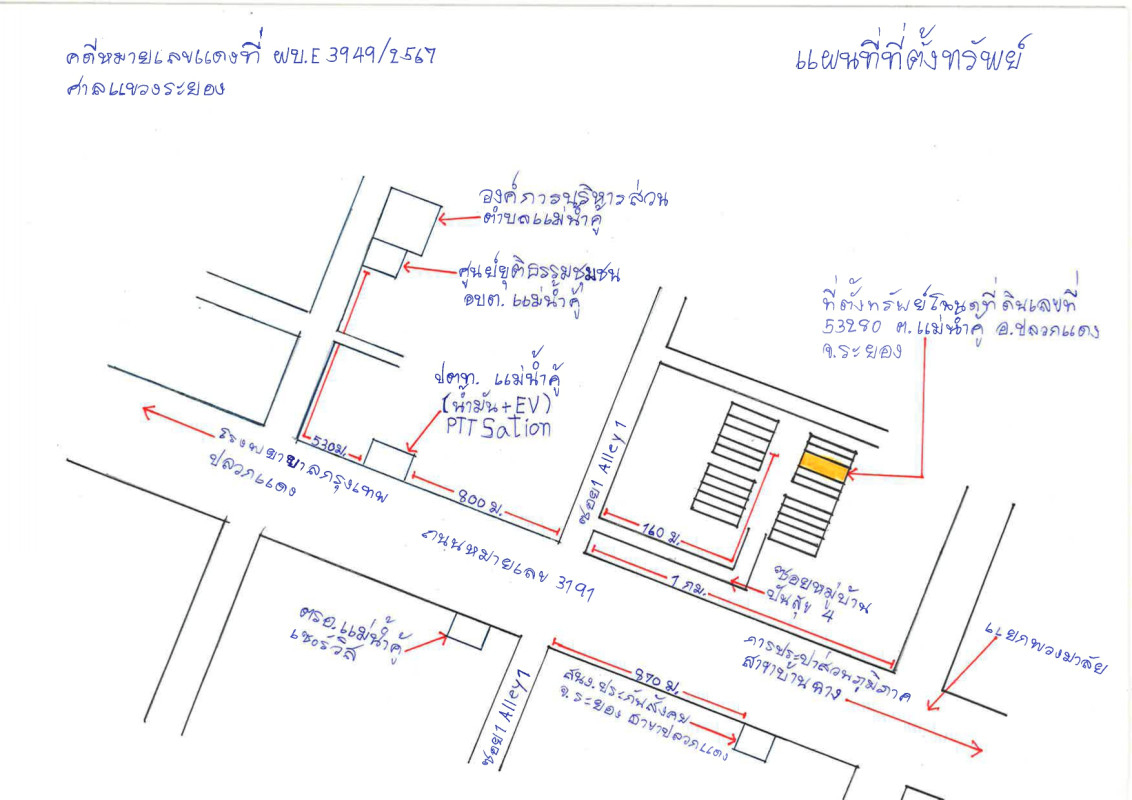 คดีหมายเลขแดงที่ ผบ.E 3949/2567
ศาลแขวงระยอง
แผนที่ที่ตั้งทรัพย์
องค์การบริหารส่วน
ตำบลแม่น้ำคู้
ศูนย์ยุติธรรมชุมชน
อบต. แม่น้ำคู้
ที่ตั้งทรัพย์โฉนดที่ดินเลขที่
53280 ต.แม่น้ำคู้ อ.ปลวกแดง
จ.ระยอง
ปตท. แม่น้ำคู้
(น้ำมัน+EV)
PTT Sation
530ม.
โรงพยาบาลกรุงเทพ
ปลวกแดง
800 ม.
ซอย1 Alley 1
160 ม.
1 กม.
ซอยหมู่บ้าน
ปั้นสุข 4
ถนนหมายเลข 3191
ตรอ.แม่น้ำคู้
เซอร์วิส
ซอย1 Alley 1
870 ม.
สนง.ประกันสังคม
จ.ระยอง สาขาปลวกแดง
การประปาส่วนภูมิภาค
สาขาบ้านฉาง
แยกพวงมาลัย